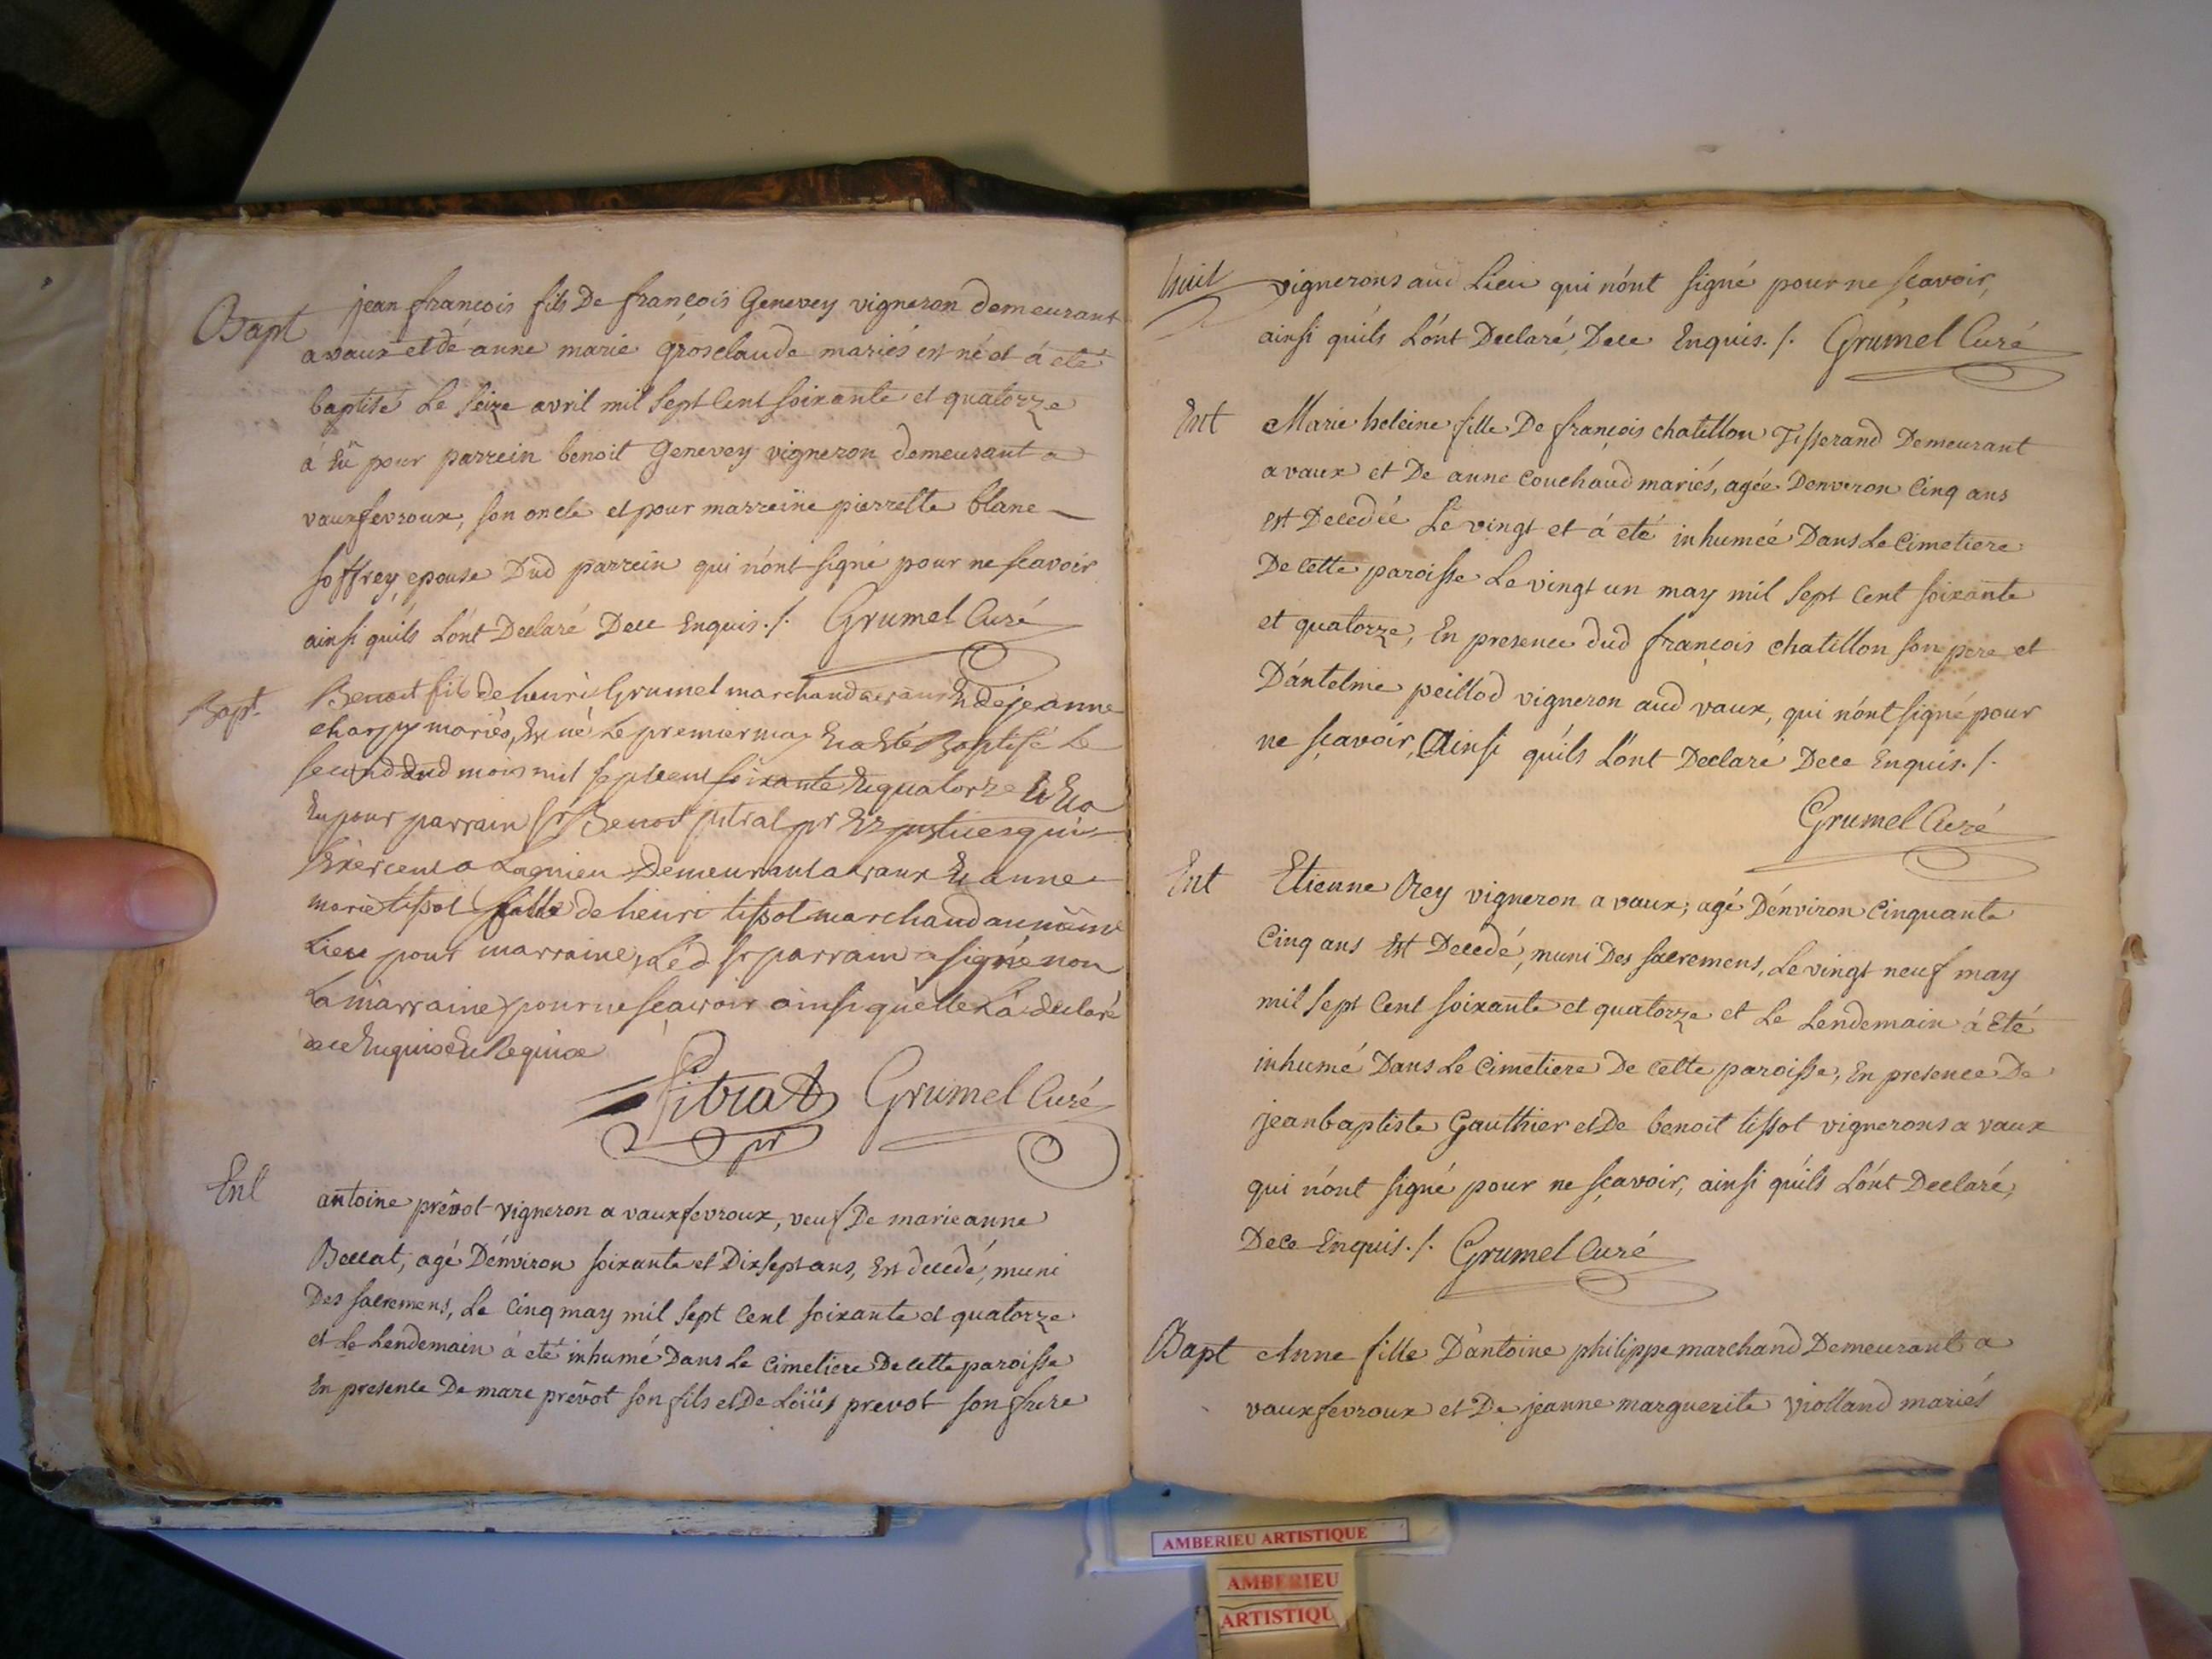 Bapt jean françois fils De françois Genevey vigneron demeurant
a vaux et de anne marie grosclaude mariés est né et á eté
baptisé Le seize avril mil sept Cent soixante et quatorze
á Eü pour parrein benoit Genevey vigneron demeurant a
vauxfevroux, son oncle et pour marreine pierrette blanc
joffrey epouse Dud parrein qui n'ónt signé pour ne scavoir
ainsi qu'ils L'ónt Declaré Dece Enquis ./. Grumel Curé
Bapt. Benoit fils de henri Grumel marchand a vaux Et de jeanne
charpy mariés, Est né Le premier may Et a Eté Baptisé Le
second dud mois mil sept cent soixante Et quatorze Et a
Eu pour parrain sr Benoit pitrat pr Es justices qui
s'Exercent a Lagnieu Demeurant a vaux Et anne
marie tissot fille de henri tissot marchand au même
Lieu pour marraine, Led sr parrain a signé non
La marraine pour ne scavoir ainsi quelle L'a declaré
de ce Enquise Et Requise
Pitrat pr Grumel Curé
Ent antoine prévot vigneron a vauxfevroux, veuf De marie anne
Bellat, agé D'énviron soixante et Dixsept ans, Est decédé, muni
Des sacremens, Le Cinq may mil sept Cent soixante et quatorze
et Le Lendemain á eté inhumé Dans Le Cimetiere De cette paroisse
En presence De marc prévot son fils et De Loüis prevot son frere
huit vignerons aud Lieu qui n'ónt signé pour ne scavoir,
ainsi qu'ils L'ónt Declaré, Dece Enquis ./. Grumel Curé
Ent Marie heleine fille De françois chatillon Tisserand Demeurant
a vaux et De anne Couchoud mariés, agée D'environ Cinq ans
est Decedée Le vingt et á eté inhumée Dans Le Cimetiere
De cette paroisse Le vingt un may mil sept Cent soixante
et quatorze, En presence dud françois chatillon son pere et
D'ántelme peillod vigneron aud vaux, qui n'ónt signé pour
ne sçavoir, Ainsi qu'ils L'ónt Declaré Dece Enquis ./.
Grumel Curé
Ent Etienne Rey vigneron a vaux; agé D'énviron Cinquante
Cinq ans Est Decedé, muni Des sacremens, Le vingt neuf may
mil sept Cent soixante et quatorze et Le Lendemain á Eté
inhumé Dans Le Cimetiere De cette paroisse, En presence De
jean baptiste Gauthier et De benoit tissot vignerons a vaux
qui n'ónt signé pour ne sçavoir, ainsi qu'ils L'ónt Declaré,
Dece Enquis ./. Grumel Curé
Bapt Anne fille D'antoine philippe marchand Demeurant a
vauxfevroux et De jeanne marguerite violland mariés
AMBERIEU ARTISTIQUE
AMBERIEU
ARTISTIQU